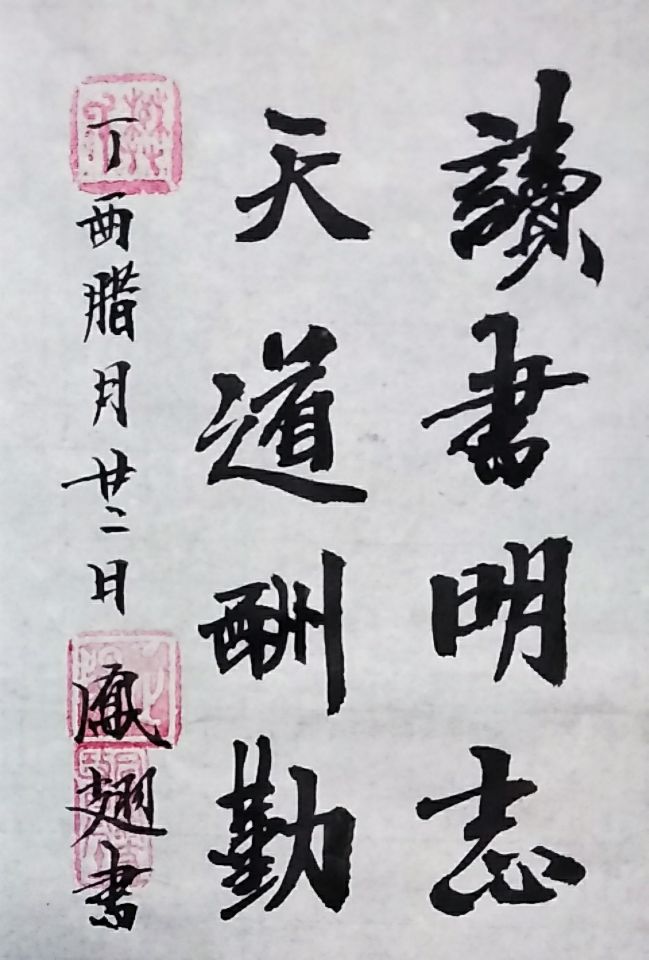 讀書明志
天道酬勤
丁酉腊月廿二日鳳翅書